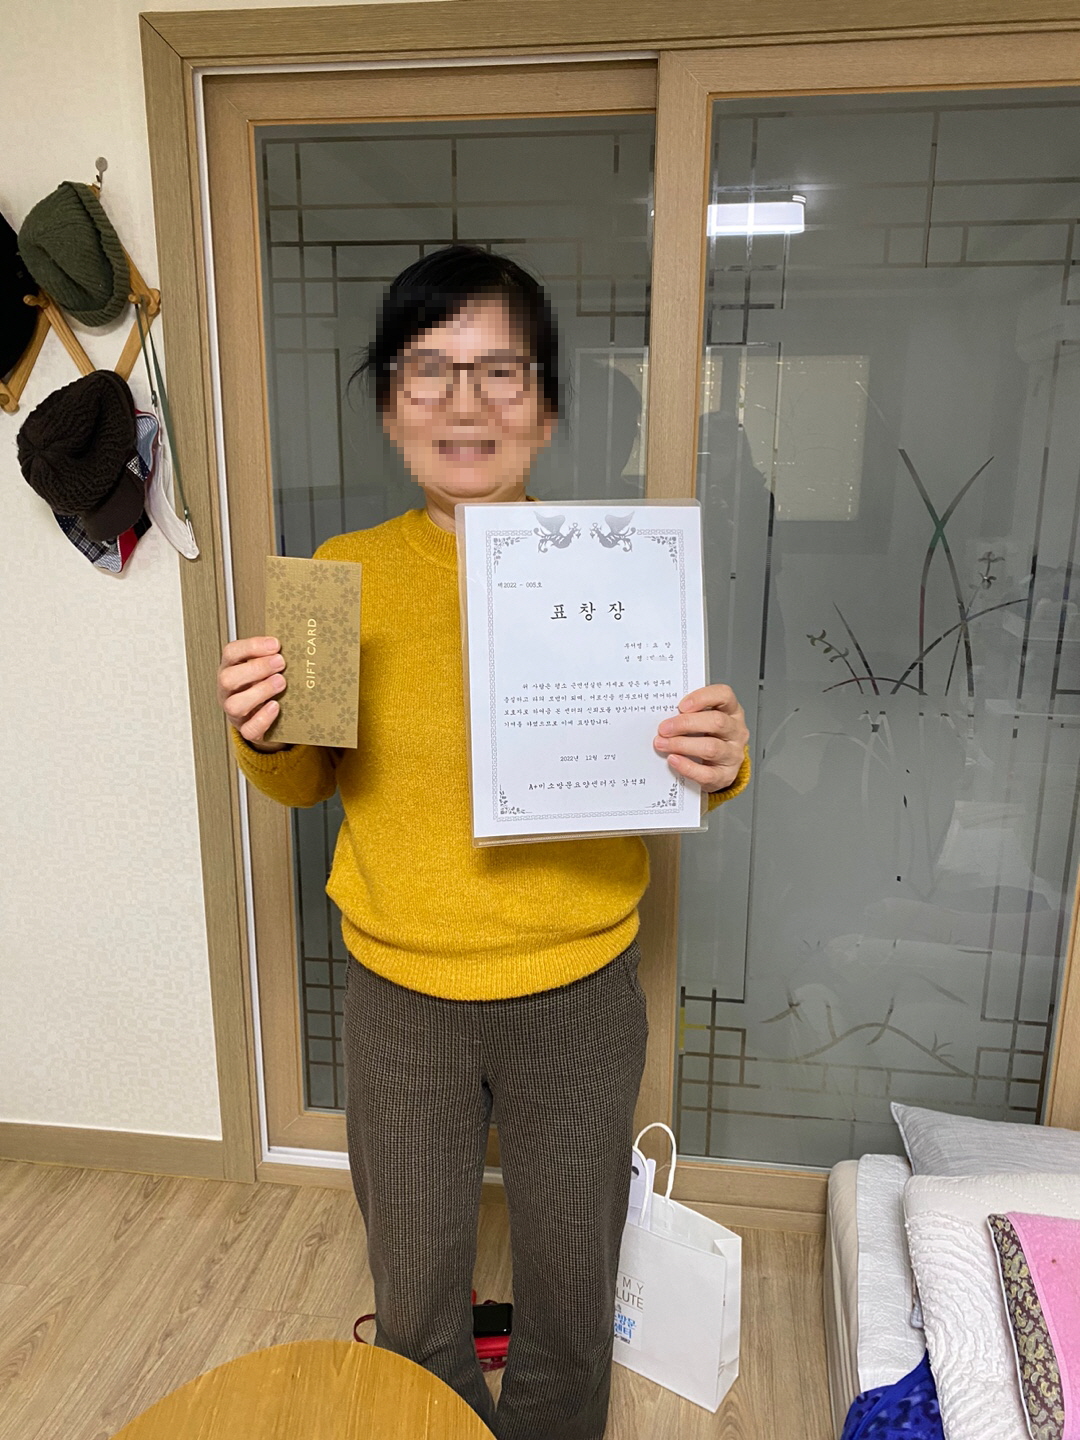 GIFT CARD
제2022 - 005호
표 창 장
부서명 : 요 양
성 명 :
위 사람은 평소 근면성실한 자세로 맡은 바 업무에
충실하고 타의 모범이 되며, 어르신을 친부모처럼 케어하여
보호자로 하여금 본 센터의 신뢰도를 향상시키어 센터발전에
기여를 하였으므로 이에 표창합니다.
2022년 12월 27일
A+미소방문요양센터장 강석희
MY
LUTE
방문
센터